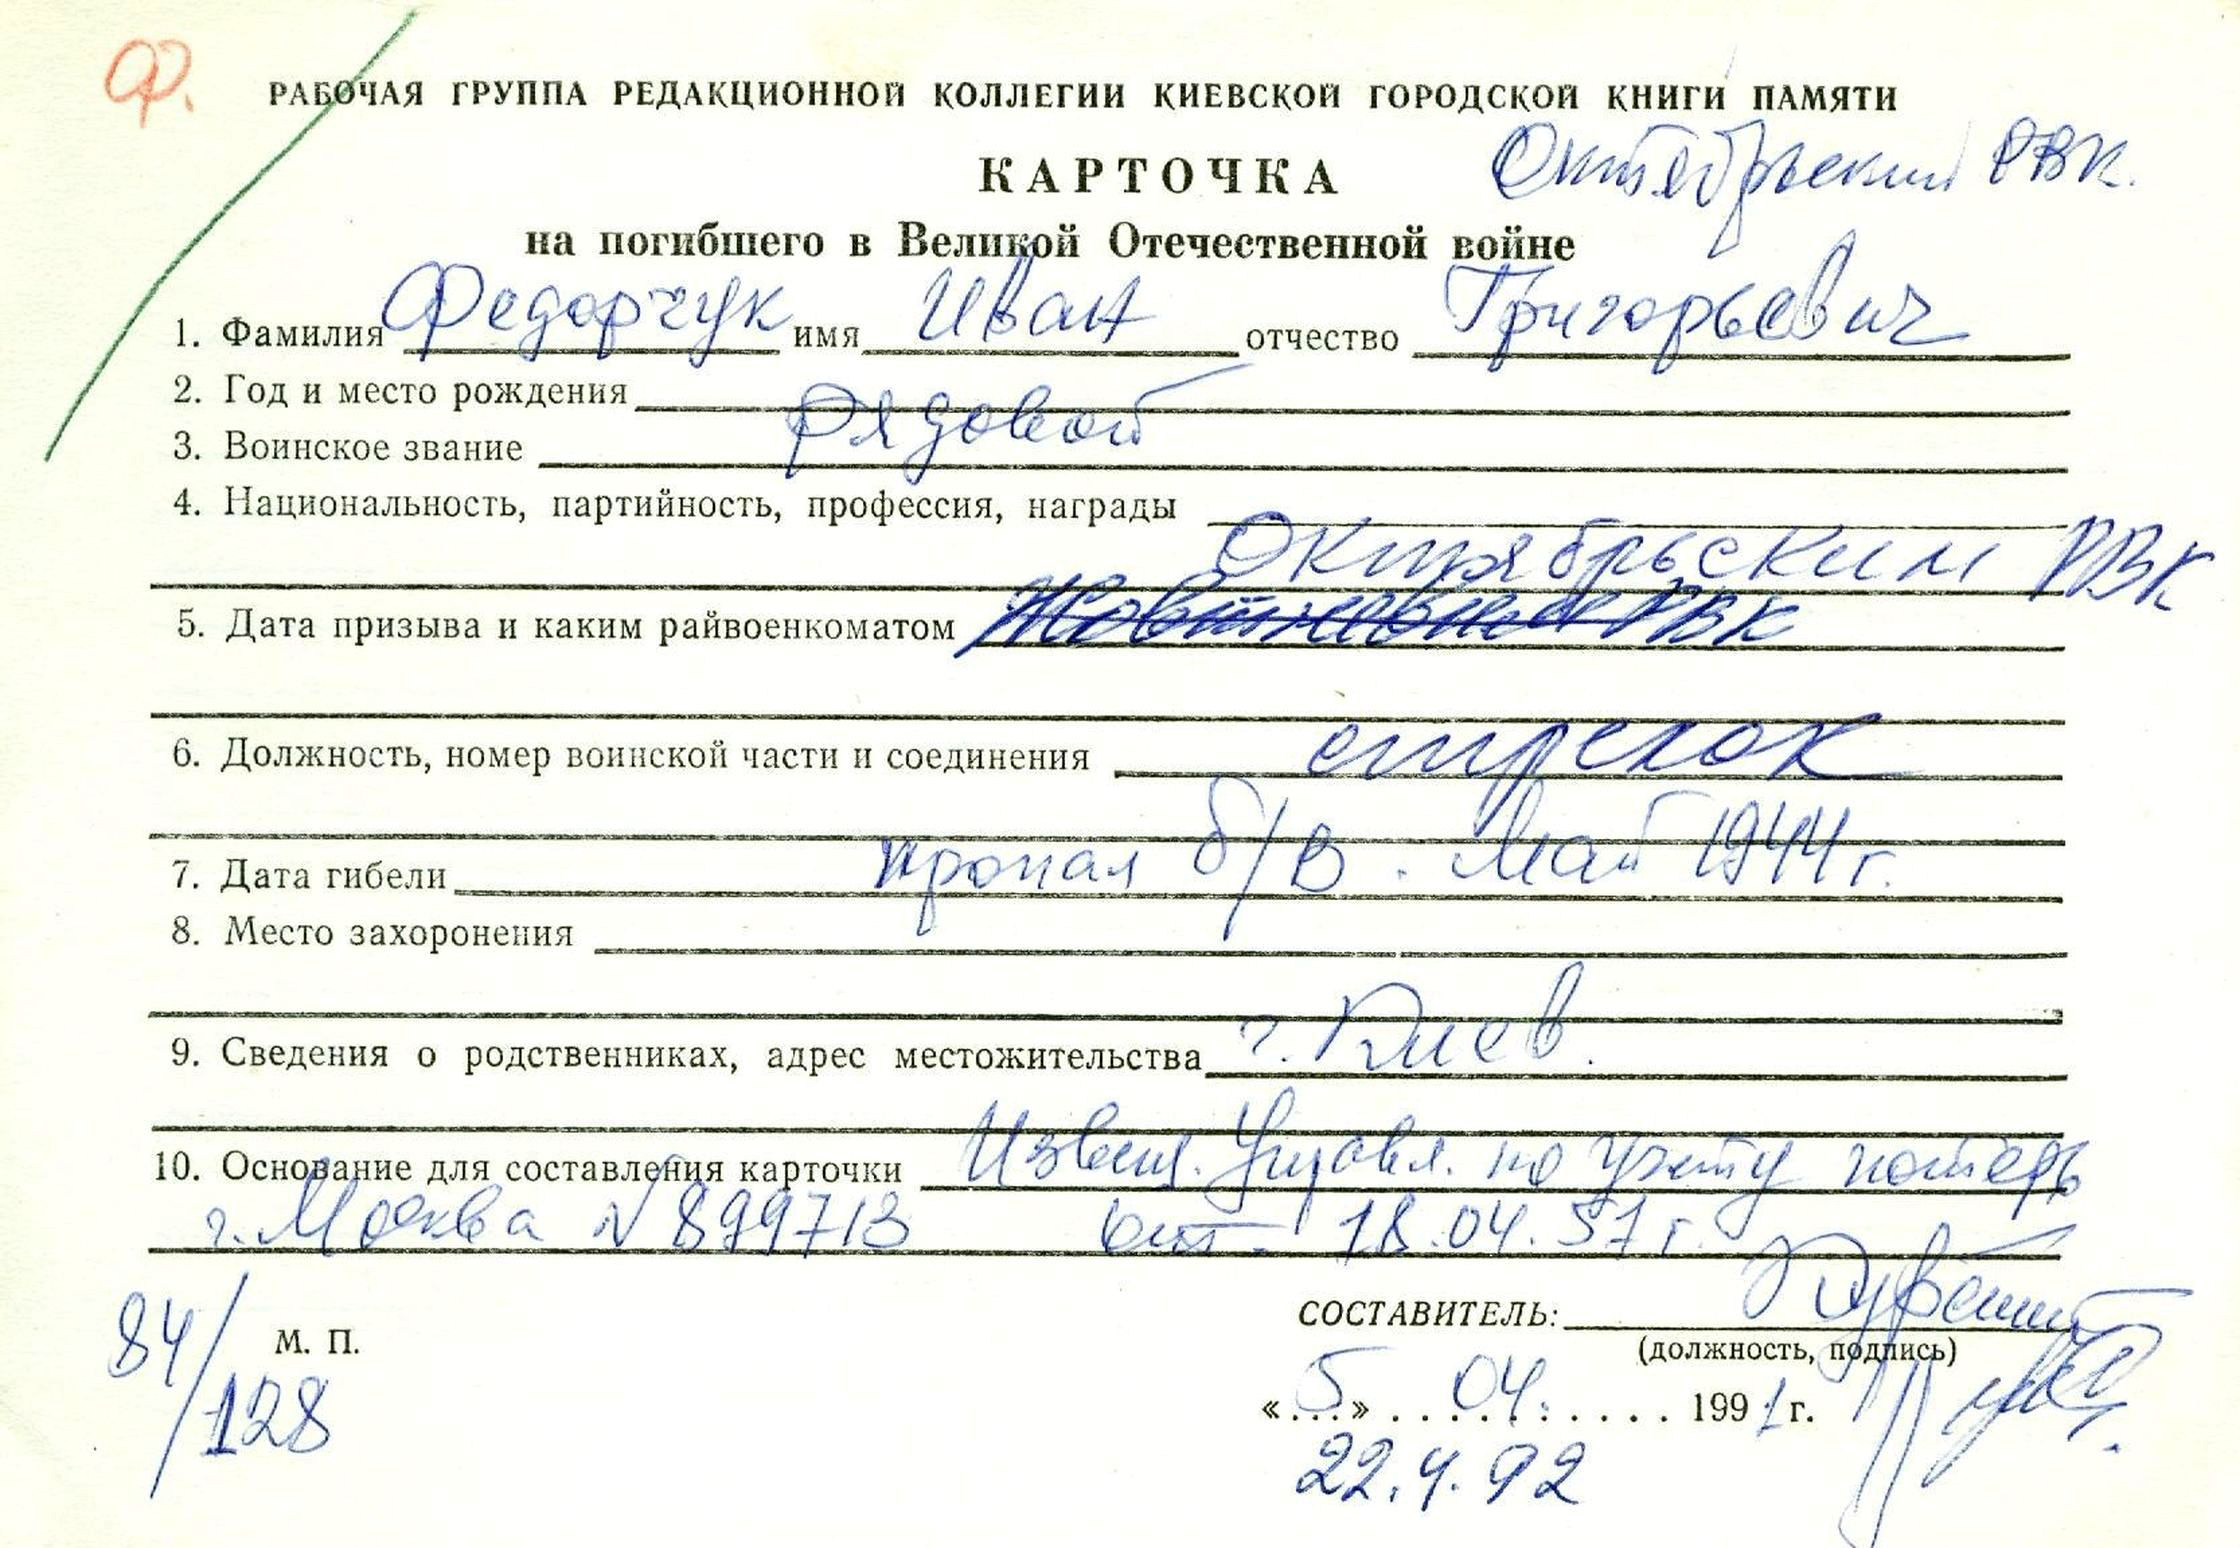 Ф.
РАБОЧАЯ ГРУППА РЕДАКЦИОННОЙ КОЛЛЕГИИ КИЕВСКОЙ ГОРОДСКОЙ КНИГИ ПАМЯТИ
Октябрьский РВК.
КАРТОЧКА
на погибшего в Великой Отечественной войне
1. Фамилия Федорчук имя Иван отчество Григорьевич
2. Год и место рождения
3. Воинское звание рядовой
4. Национальность, партийность, профессия, награды
Октябрьским РВК
5. Дата призыва и каким райвоенкоматом РВК
6. Должность, номер воинской части и соединения стрелок
7. Дата гибели пропал б/в. Май 1944 г.
8. Место захоронения
9. Сведения о родственниках, адрес местожительства г. Киев.
10. Основание для составления карточки Извещ. Управл. по учету потерь
г. Москва № 899713 от 18.04.57 г.
СОСТАВИТЕЛЬ:
(должность, подпись)
84/128
М. П.
«5» 04. 1991 г.
22.4.92